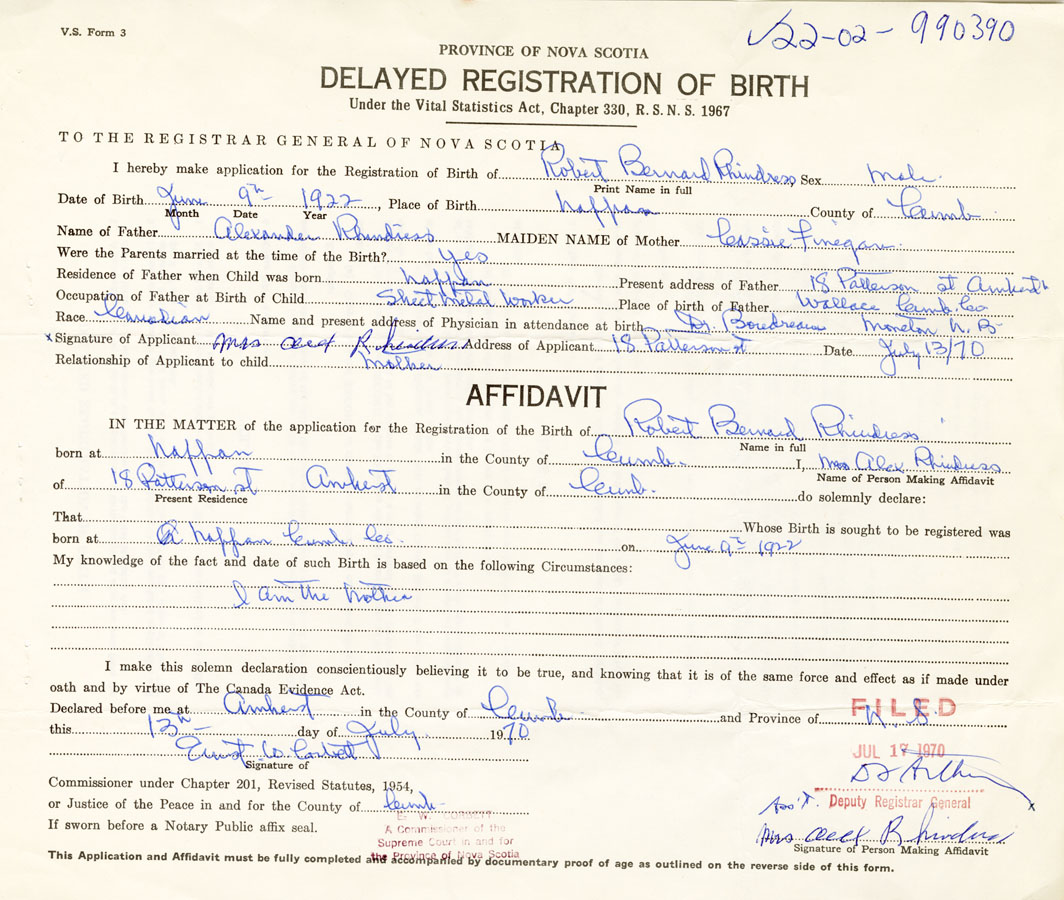 V.S. Form 3
22-02-990390
PROVINCE OF NOVA SCOTIA
DELAYED REGISTRATION OF BIRTH
Under the Vital Statistics Act, Chapter 330, R. S. N. S. 1967
TO THE REGISTRAR GENERAL OF NOVA SCOTIA
I hereby make application for the Registration of Birth of Robert Bernard Rhindress, Sex male.
Print Name in full
Date of Birth June 9th 1922, Place of Birth Nappan County of Cumb.
Month Date Year
Name of Father Alexander Rhindress MAIDEN NAME of Mother Cassie Finegan.
Were the Parents married at the time of the Birth? yes
Residence of Father when Child was born Nappan Present address of Father 18 Patterson st Amherst
Occupation of Father at Birth of Child Sheet Metal Worker Place of birth of Father Wallace Cumb. Co
Race Canadian Name and present address of Physician in attendance at birth Dr. Boudreau Moncton N. B
x Signature of Applicant Mrs Alex Rhindress Address of Applicant 18 Patterson st Date July 13/70
Relationship of Applicant to child Mother
AFFIDAVIT
IN THE MATTER of the application for the Registration of the Birth of Robert Bernard Rhindress
Name in full
born at Nappan in the County of Cumb. I, Mrs Alex Rhindress
Name of Person Making Affidavit
of 18 Patterson st Amherst in the County of Cumb. do solemnly declare:
Present Residence
That Whose Birth is sought to be registered was
born at Nappan Cumb. Co. on June 9th 1922
My knowledge of the fact and date of such Birth is based on the following Circumstances:
I am the Mother
I make this solemn declaration conscientiously believing it to be true, and knowing that it is of the same force and effect as if made under
oath and by virtue of The Canada Evidence Act.
Declared before me at Amherst in the County of Cumb and Province of N. S.
FILED
this 13th day of July 1970
JUL 17 1970
Ernest W. Corbett
Signature of
Commissioner under Chapter 201, Revised Statutes, 1954,
or Justice of the Peace in and for the County of Cumb
Ass't. Deputy Registrar General
E. W. CORBETT
A Commissioner of the
Supreme Court in and for
the Province of Nova Scotia
If sworn before a Notary Public affix seal.
x
Mrs Alex Rhindress
Signature of Person Making Affidavit
This Application and Affidavit must be fully completed and accompanied by documentary proof of age as outlined on the reverse side of this form.